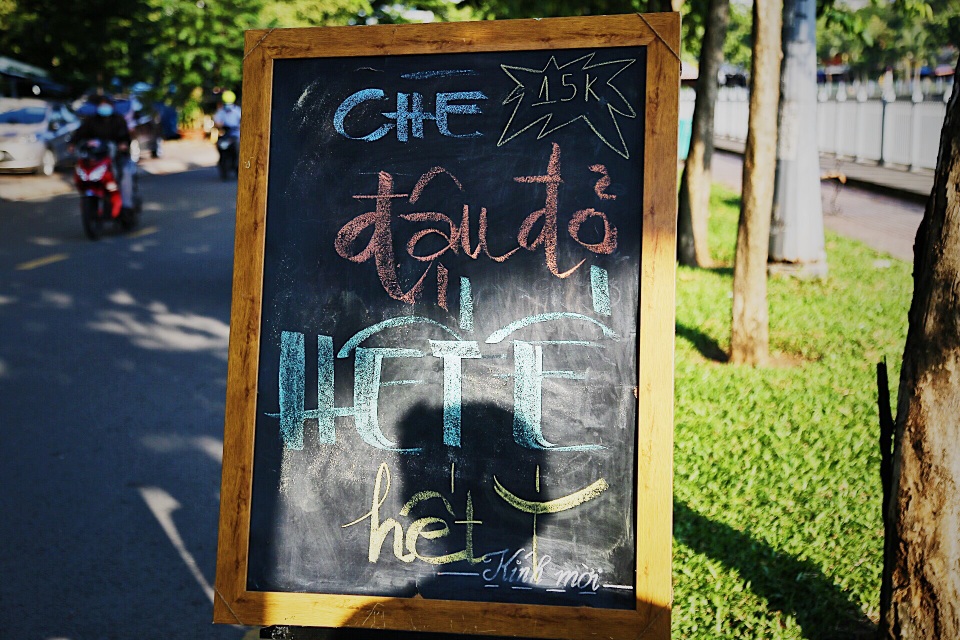 CHE 15K
đậu đỏ
HẾT Ế
hết Ế
Kính mời